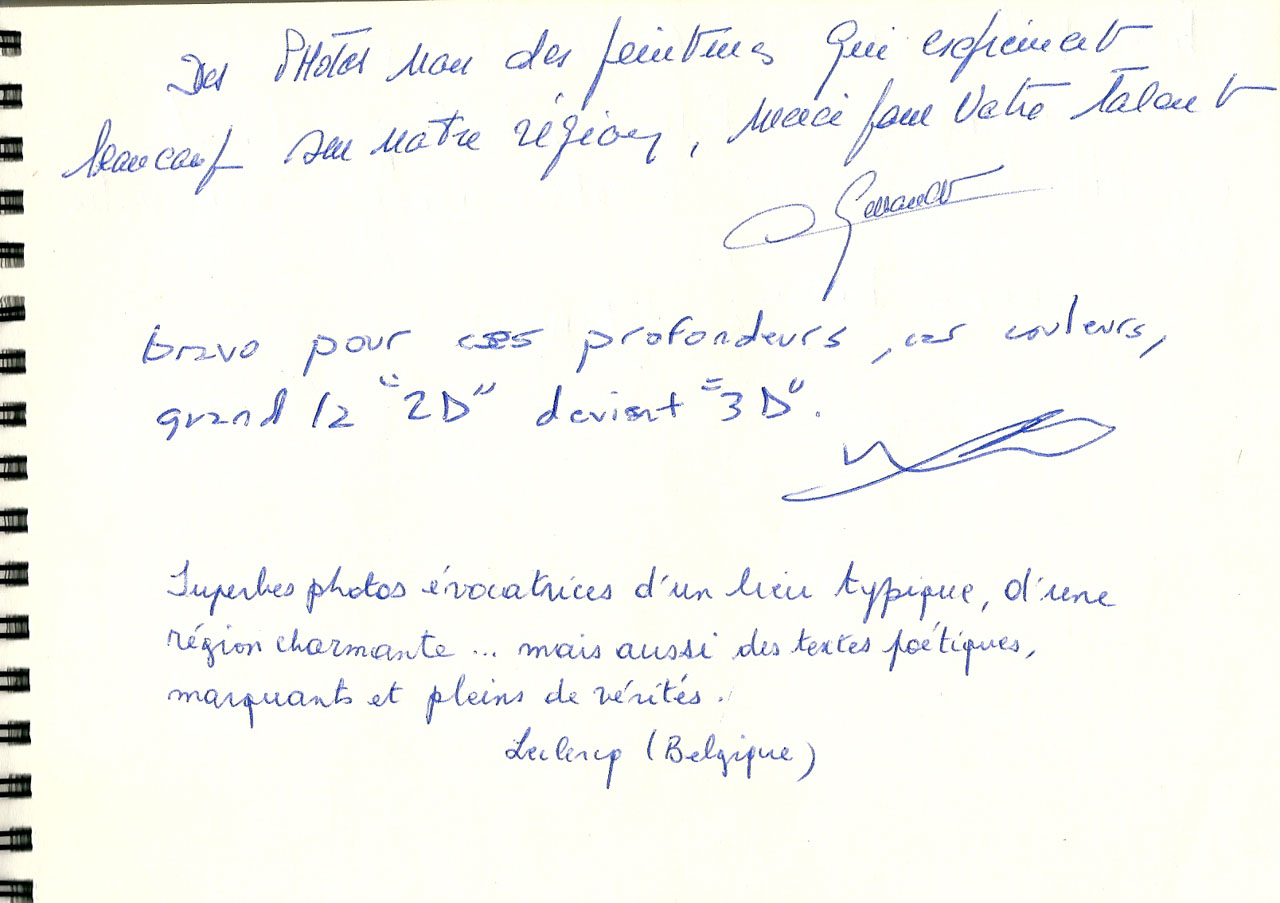 Des Photos non des peintures qui expriment
beaucoup sur notre région, merci pour votre talent
bravo pour ces profondeurs, ces couleurs,
quand la "2D" devient "3D".
Superbes photos évocatrices d'un lieu typique, d'une
région charmante ... mais aussi des textes poétiques,
marquants et pleins de vérités.
Leclercq (Belgique)